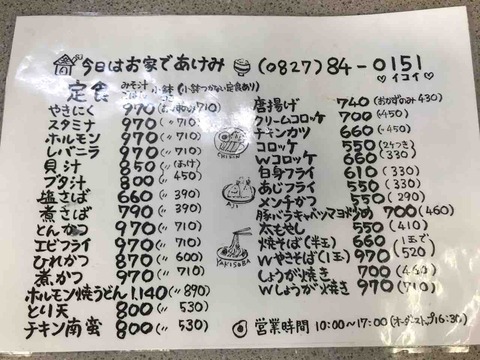 今日はお家であけみ (0827)84-0151
♡イコイ♡
定食 みそ汁 ごはん 小鉢 (小鉢つかない定食あり)
やきにく 970 (おかずのみ710)
スタミナ 970 (〃710)
ホルモン 970 (〃710)
レバーニラ 970 (〃710)
貝汁 850 (〃 )
ブタ汁 800 (〃450)
塩さば 660 (〃390)
煮さば 790 (〃390)
とんかつ 970 (〃710)
エビフライ 970 (〃710)
ひれかつ 870 (〃600)
煮かつ 970 (〃710)
ホルモン焼うどん 1,140 (〃890)
とり天 800 (〃530)
チキン南蛮 800 (〃530)
CHICKIN
AJI
YAKISOBA
唐揚げ 740 (おかずのみ430)
クリームコロッケ 700 (〃450)
チキンカツ 660 (〃450)
コロッケ 550 (2コつき)
Wコロッケ 660 (330)
白身フライ 610 (330)
あじフライ 550 (330)
メンチかつ 550 (290)
豚バラキャベツマヨ炒め 700 (460)
太もやし 550 (410)
焼そば(半玉) 660 (1玉で)
Wやきそば(1玉) 970 (520)
しょうが焼き 700 (460)
Wしょうが焼き 970 (710)
営業時間 10:00〜17:00 (オーダーストップ16:30)